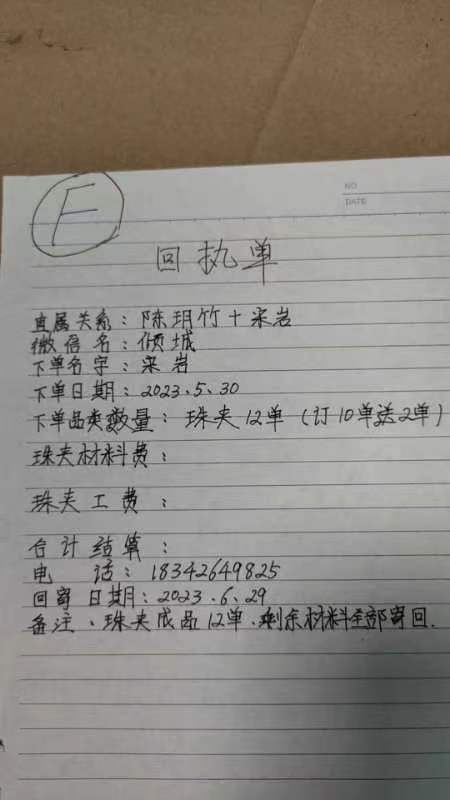 NO
DATE
F
回执单
直属关系：陈玥竹+宋岩
微信名：倾城
下单名字：宋岩
下单日期：2023.5.30
下单品类数量：珠夹12单（订10单送2单）
珠夹材料费：
珠夹工费：
合计结算：
电话：18342649825
回寄日期：2023.6.29
备注、珠夹成品12单、剩余材料全部寄回.